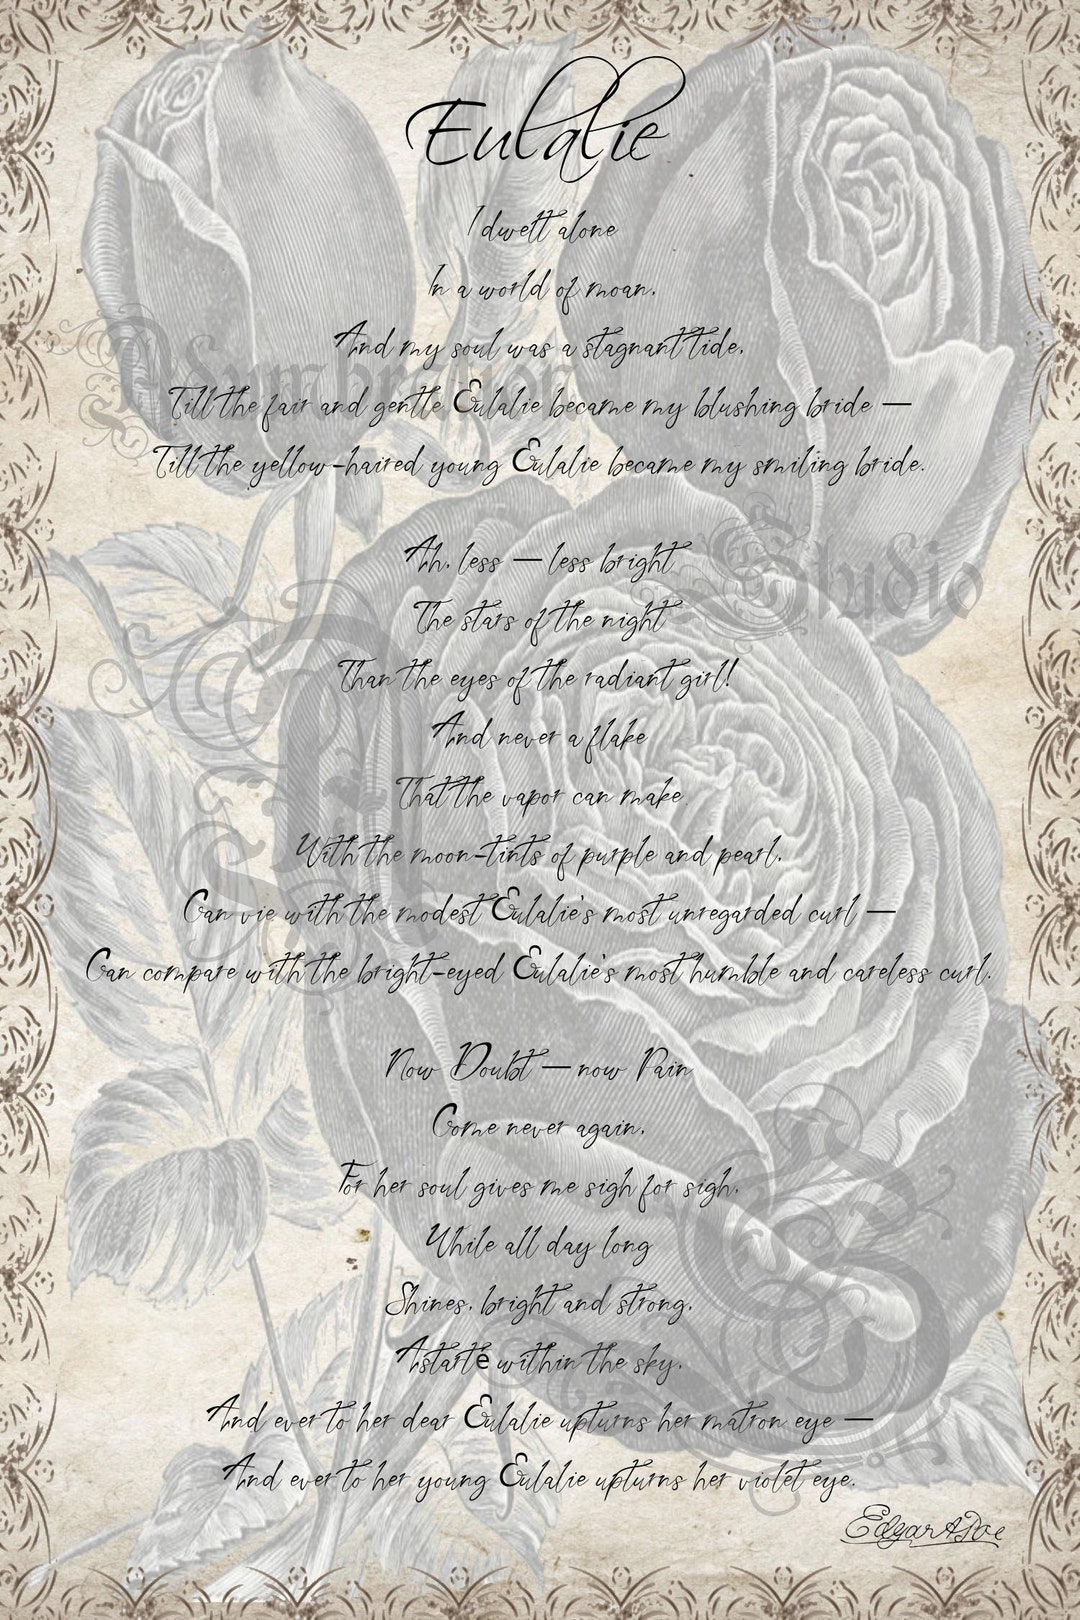 Eulalie
I dwelt alone
In a world of moan,
And my soul was a stagnant tide,
Till the fair and gentle Eulalie became my blushing bride —
Till the yellow-haired young Eulalie became my smiling bride.
Ah, less — less bright
The stars of the night
Than the eyes of the radiant girl!
And never a flake
That the vapor can make
With the moon-tints of purple and pearl,
Can vie with the modest Eulalie's most unregarded curl —
Can compare with the bright-eyed Eulalie's most humble and careless curl.
Now Doubt — now Pain
Come never again,
For her soul gives me sigh for sigh,
While all day long
Shines, bright and strong,
Astarte within the sky,
And ever to her dear Eulalie upturns her matron eye —
And ever to her young Eulalie upturns her violet eye.
Edgar A Poe
Adumbration
Studio
A
S